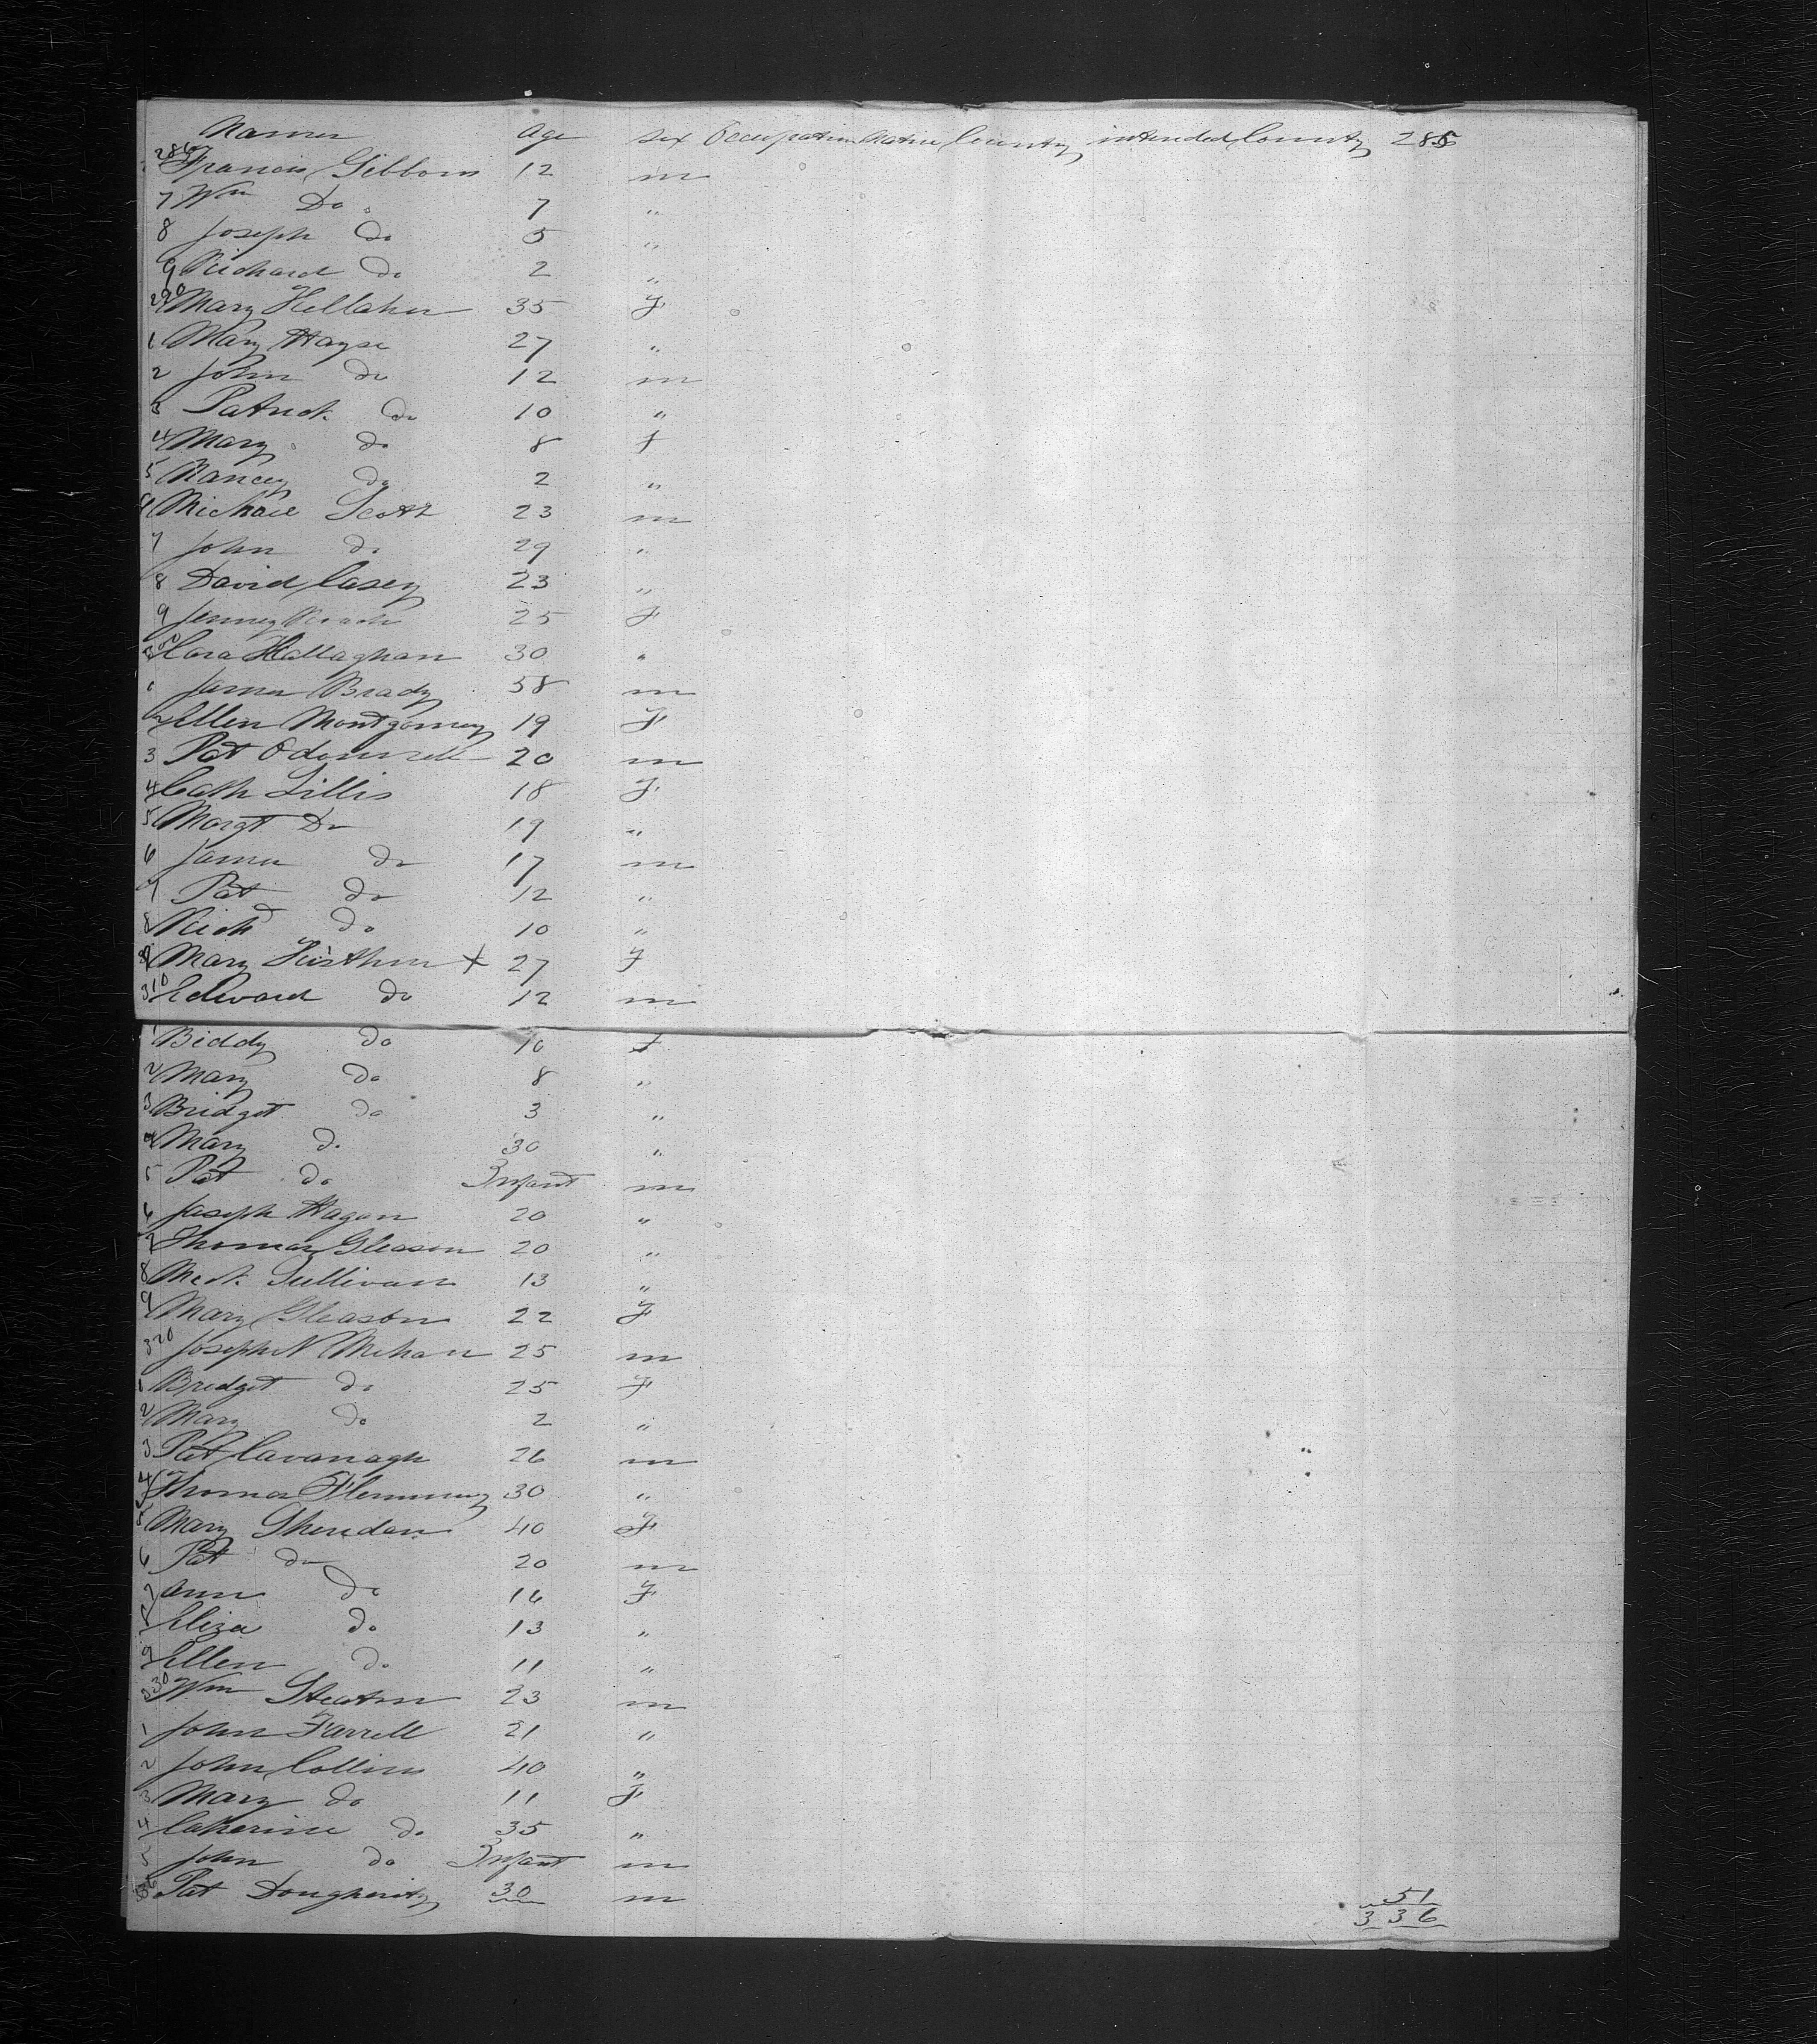 Names Age Sex Occupation Native County intended County 285
286 Francis Gibbons 12 m
7 Wm Do 7 "
8 Joseph do 5 "
9 Richard do 2 "
290 Mary Hellaher 35 F
1 Mary Hayse 27 "
2 John do 12 m
3 Patrick do 10 "
4 Mary do 8 f
5 Nancy do 2 "
6 Michael Scott 23 m
7 John do 29 "
8 David Casey 23 "
9 Jenney Roach 25 F
300 Cora Hallaghan 30 "
1 James Brady 58 m
2 Ellen Montgomery 19 F
3 Pat Odonnell 20 m
4 Cath Lillis 18 F
5 Margt Do 19 "
6 James do 17 m
7 Pat do 12 "
8 Richd do 10 "
9 Mary + 27 F
310 Edward do 12 m
1 Biddy do 10 F
2 Mary do 8 "
3 Bridget do 3 "
4 Mary do 30 "
5 Pat do Infant m
6 Joseph Hagan 20 "
7 Thomas Gleason 20 "
8 Mick Sullivan 13 "
9 Mary Gleason 22 F
320 Joseph N Mehan 25 m
1 Bredget do 25 F
2 Mary do 2 "
3 Pat Cavanagh 26 m
4 Thomas Flemming 30 "
5 Mary Sheridan 40 F
6 Pat do 20 m
7 Ann do 16 F
8 Eliza do 13 "
9 Ellen do 11 "
330 Wm 23 m
1 John Farrell 21 "
2 John Collins 40 "
3 Mary do 11 F
4 Catherine do 35 "
5 John do Infant m
336 Pat Dougherity 30 m
51
336